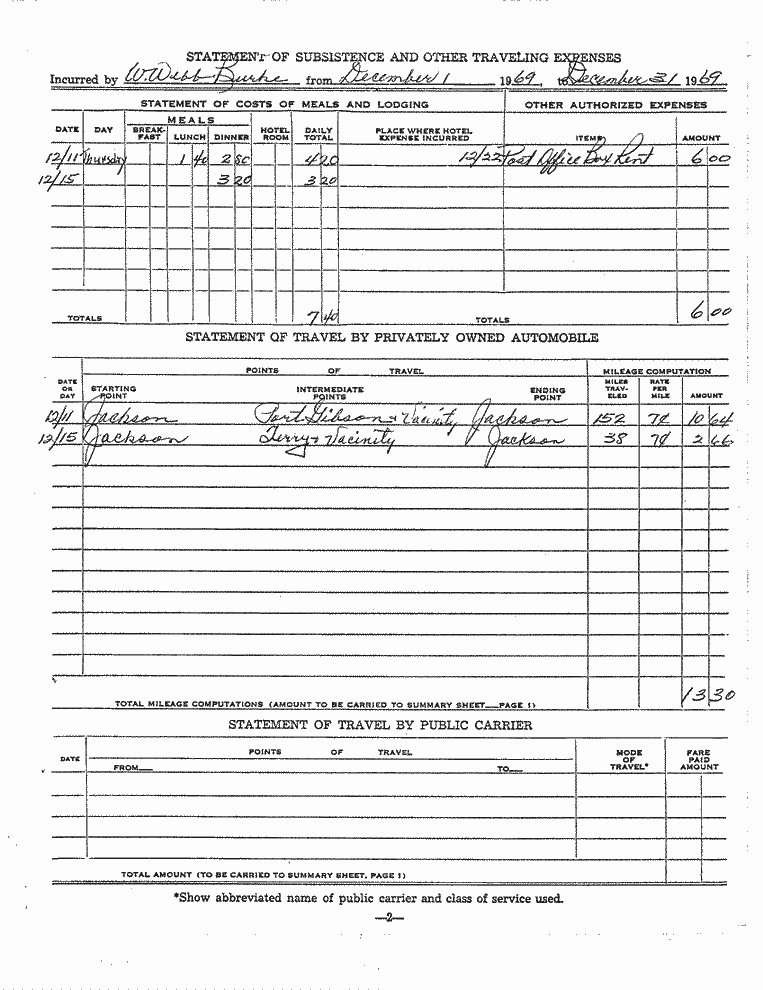 STATEMENT OF SUBSISTENCE AND OTHER TRAVELING EXPENSES
Incurred by W. Webb Burke from December 1 1969 to December 31 1969
STATEMENT OF COSTS OF MEALS AND LODGING OTHER AUTHORIZED EXPENSES
MEALS
DATE DAY BREAK-FAST LUNCH DINNER HOTEL ROOM DAILY TOTAL PLACE WHERE HOTEL EXPENSE INCURRED ITEMS AMOUNT
12/11 Thursday 1 40 2 80 4 20 12/22 Post Office Box Rent 6 00
12/15 3 20 3 20
TOTALS 7 40 TOTALS 6 00
STATEMENT OF TRAVEL BY PRIVATELY OWNED AUTOMOBILE
POINTS OF TRAVEL MILEAGE COMPUTATION
DATE OR DAY STARTING POINT INTERMEDIATE POINTS ENDING POINT MILES TRAV-ELED RATE PER MILE AMOUNT
12/11 Jackson Port Gibson & Vacinity Jackson 152 7¢ 10 64
12/15 Jackson Terry & Vacinity Jackson 38 7¢ 2 66
TOTAL MILEAGE COMPUTATIONS (AMOUNT TO BE CARRIED TO SUMMARY SHEET—PAGE 1) 13 30
STATEMENT OF TRAVEL BY PUBLIC CARRIER
DATE POINTS OF TRAVEL MODE OF TRAVEL* FARE PAID AMOUNT
FROM— TO—
TOTAL AMOUNT (TO BE CARRIED TO SUMMARY SHEET, PAGE 1)
*Show abbreviated name of public carrier and class of service used.
—2—